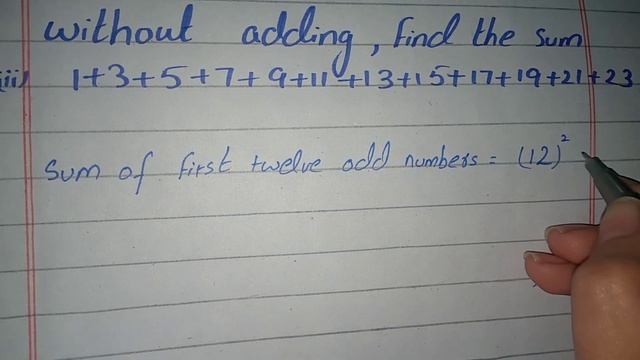 without adding, find the sum
(ii) 1+3+5+7+9+11+13+15+17+19+21+23
Sum of first twelve odd numbers = (12)²